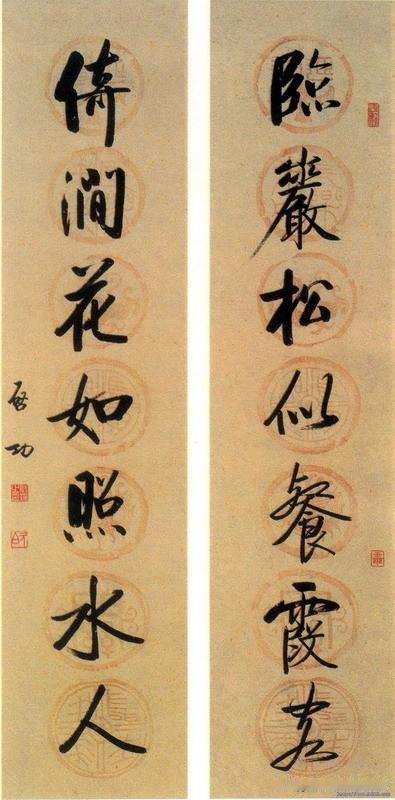 臨巖松似餐霞客
倚澗花如照水人
啓功